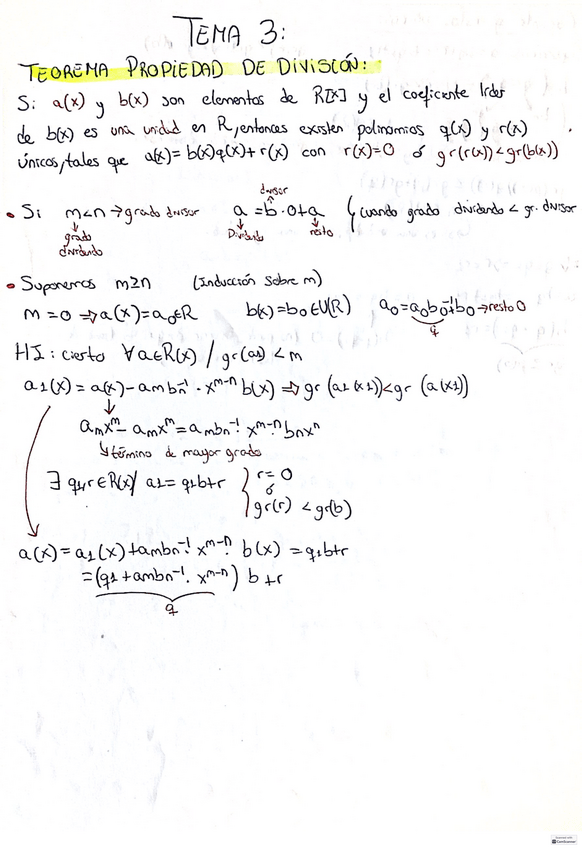 TEMA 3:
TEOREMA PROPIEDAD DE DIVISIÓN:
Si a(x) y b(x) son elementos de R[X] y el coeficiente líder
de b(x) es una unidad en R, entonces existen polinomios q(x) y r(x)
únicos, tales que a(x)= b(x)q(x)+r(x) con r(x)=0 ó gr(r(x))<gr(b(x))
divisor
• Si m<n → grado divisor a = b·0+a (cuando grado dividendo < gr. divisor
grado dividendo Dividendo resto
• Suponemos m≥n (Inducción sobre m)
m=0 ⇒ a(x)=a₀∈R b(x)=b₀∈U(R) a₀=a₀b₀⁻¹b₀ → resto 0
q
HI: cierto ∀a∈R(x) / gr(a1) < m
a1(x) = a(x) - ambn⁻¹ · x^m-n b(x) ⇒ gr (a1(x1))<gr (a(x1))
amx^m - amx^m = ambn⁻¹ · x^m-n · bnx^n
término de mayor grado
∃ q1,r∈R(x) / a1 = q1b+r } r=0
ó
gr(r) < gr(b)
a(x) = a1(x) + ambn⁻¹ · x^m-n · b(x) = q1b+r
=(q1+ambn⁻¹ · x^m-n) b +r
q
Escaneado con CamScanner